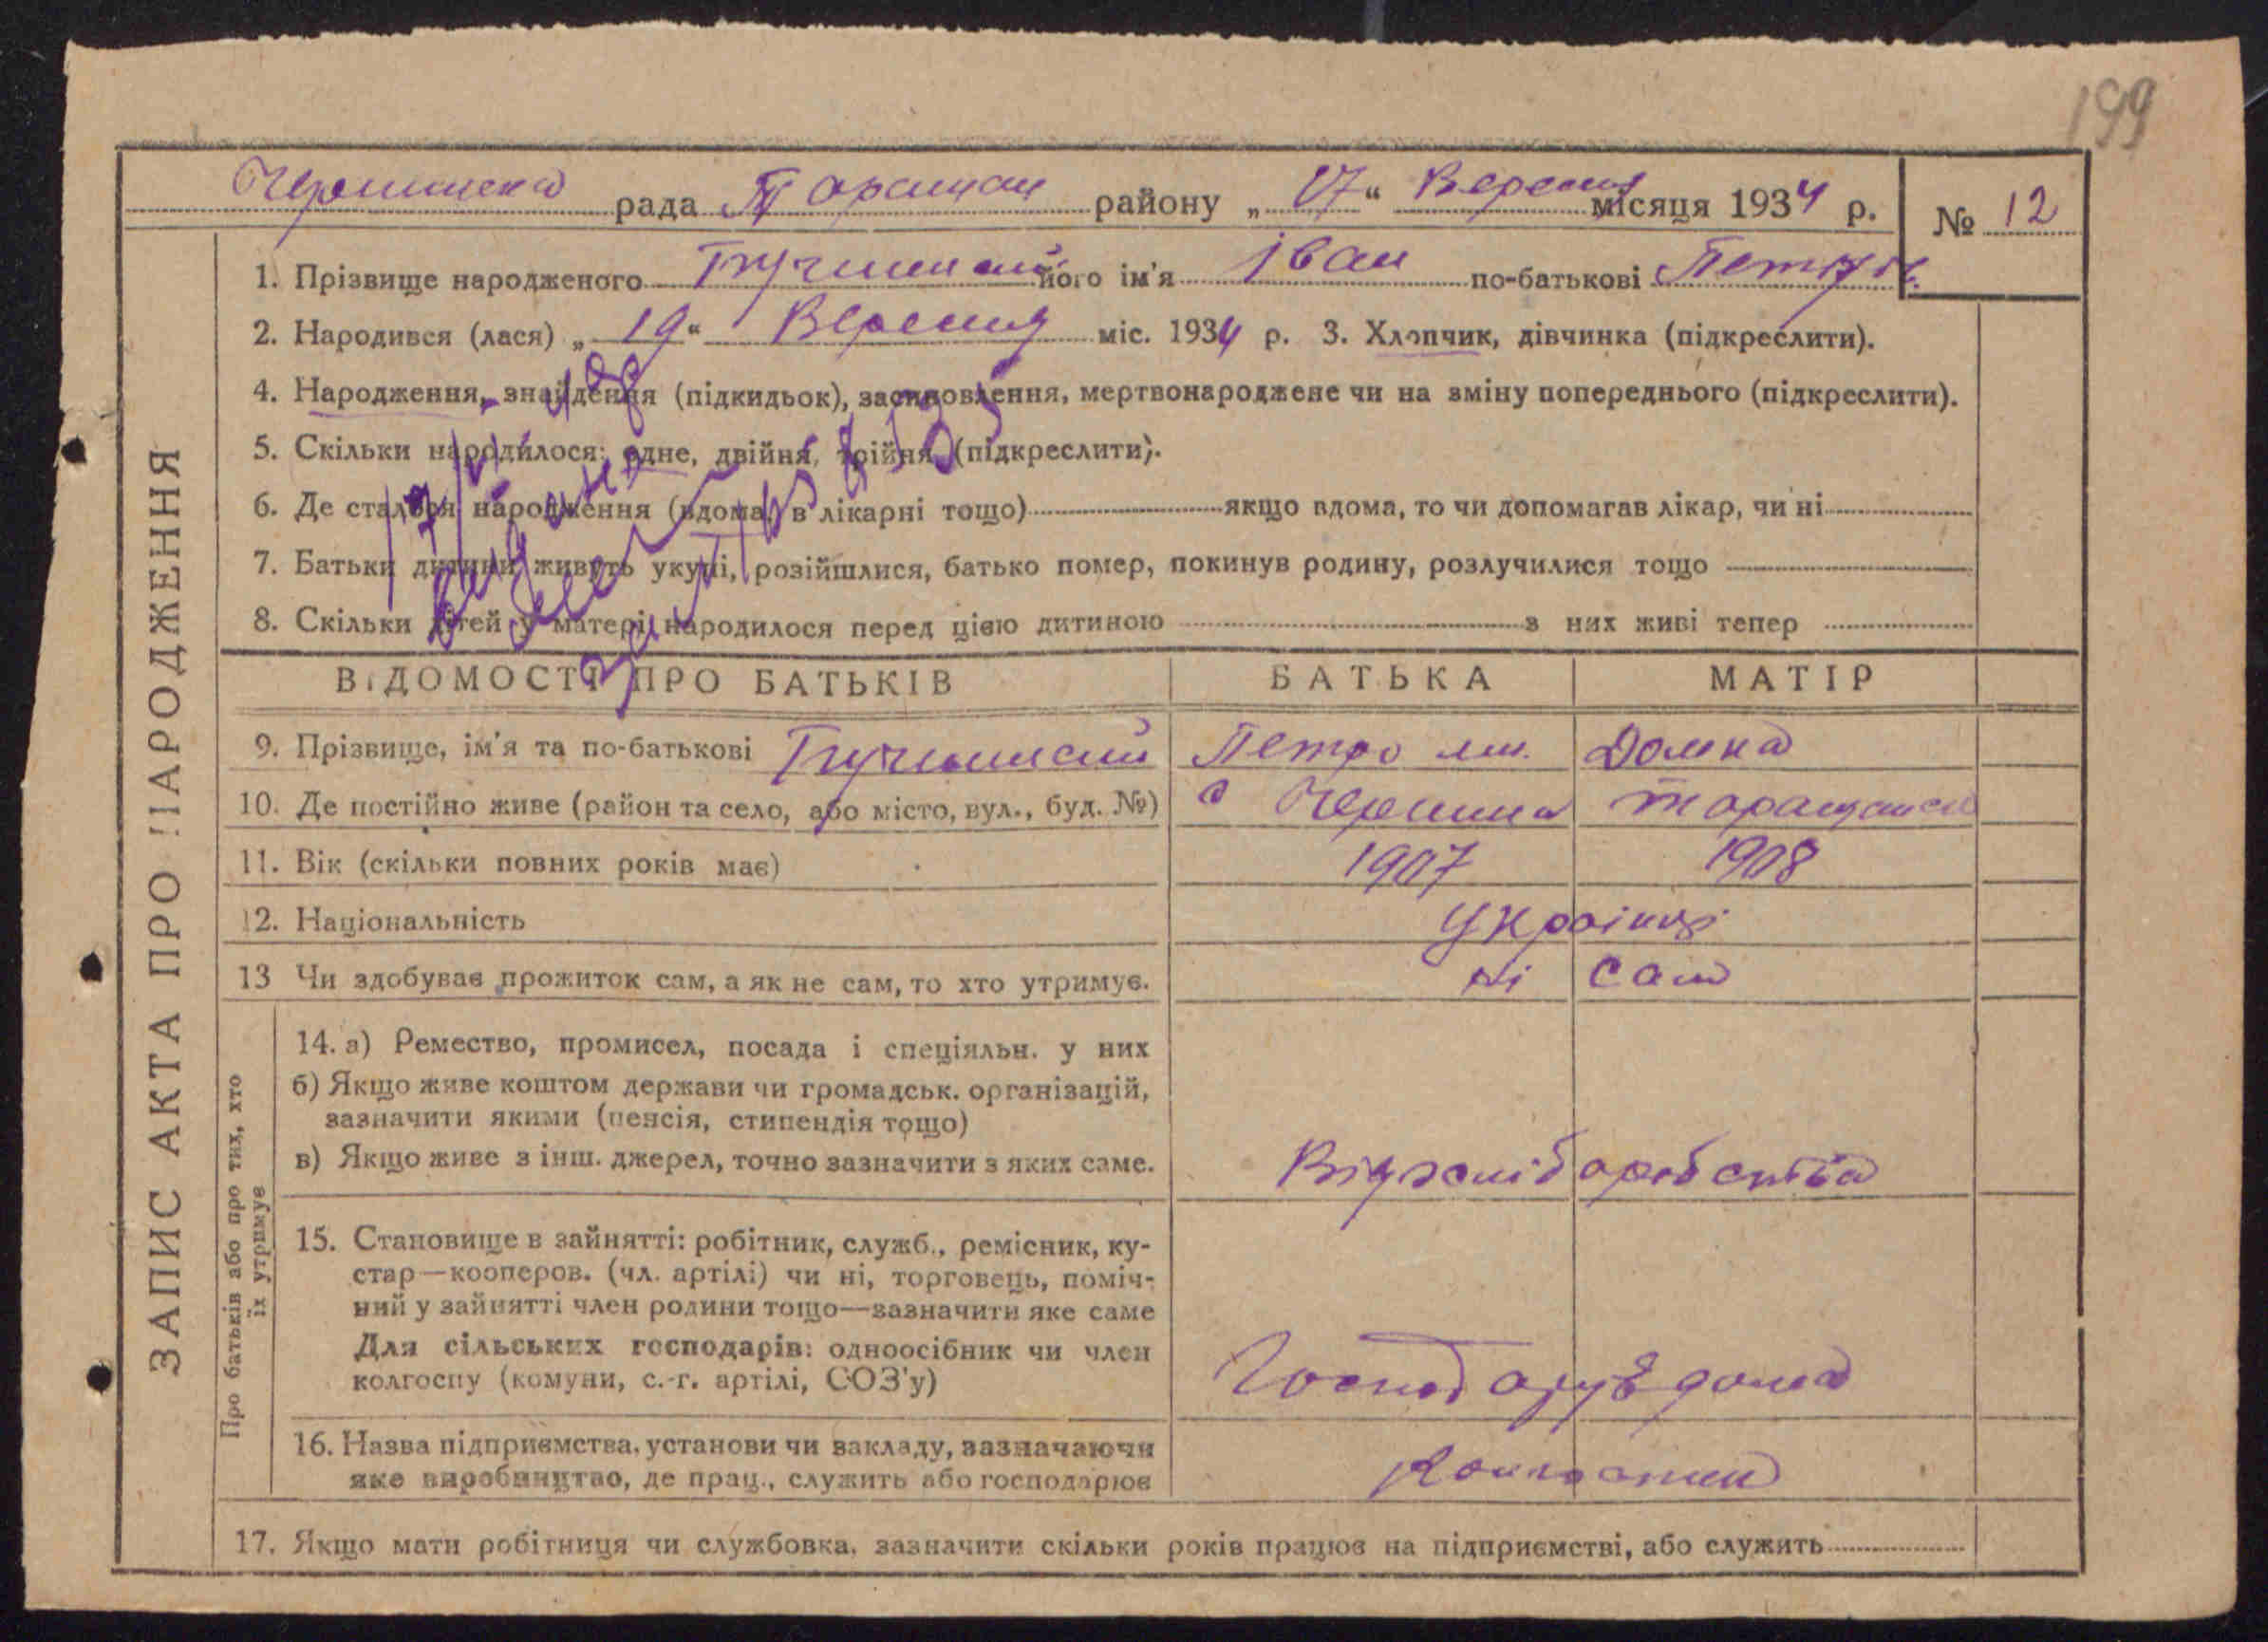 199
рада Таращан району „17“ Вересня місяця 1934 р. № 12
1. Прізвище народженого його ім'я Іван по-батькові Петров.
2. Народився (лася) „19“ Вересня міс. 1934 р. 3. Хлопчик, дівчинка (підкреслити).
4. Народження, знайдення (підкидьок), засиновлення, мертвонароджене чи на зміну попереднього (підкреслити).
5. Скільки народилося: одне, двійня, трійня (підкреслити).
6. Де сталося народження (вдома, в лікарні тощо) якщо вдома, то чи допомагав лікар, чи ні
7. Батьки дитини живуть укупі, розійшлися, батько помер, покинув родину, розлучилися тощо
8. Скільки дітей у матері народилося перед цією дитиною з них живі тепер
ВІДОМОСТІ ПРО БАТЬКІВ БАТЬКА МАТІР
9. Прізвище, ім'я та по-батькові Петро Домка
10. Де постійно живе (район та село, або місто, вул., буд. №) с
11. Вік (скільки повних років має) 1907 1908
12. Національність Українці
13 Чи здобуває прожиток сам, а як не сам, то хто утримує. сам
14. а) Ремество, промисел, посада і спеціяльн. у них
б) Якщо живе коштом держави чи громадськ. організацій,
зазначити якими (пенсія, стипендія тощо)
в) Якщо живе з інш. джерел, точно зазначити з яких саме. Від хліборобства
15. Становище в зайнятті: робітник, служб., ремісник, ку-
стар—кооперов. (чл. артілі) чи ні, торговець, поміч-
ний у зайнятті член родини тощо—зазначити яке саме
Для сільських господарів: одноосібник чи член
колгоспу (комуни, с.-г. артілі, СОЗ'у) дома
16. Назва підприємства, установи чи закладу, зазначаючи
яке виробництво, де прац., служить або господарює
17. Якщо мати робітниця чи службовка, зазначити скільки років працює на підприємстві, або служить
ЗАПИС АКТА ПРО НАРОДЖЕННЯ
Про батьків або про тих, хто
їх утримує